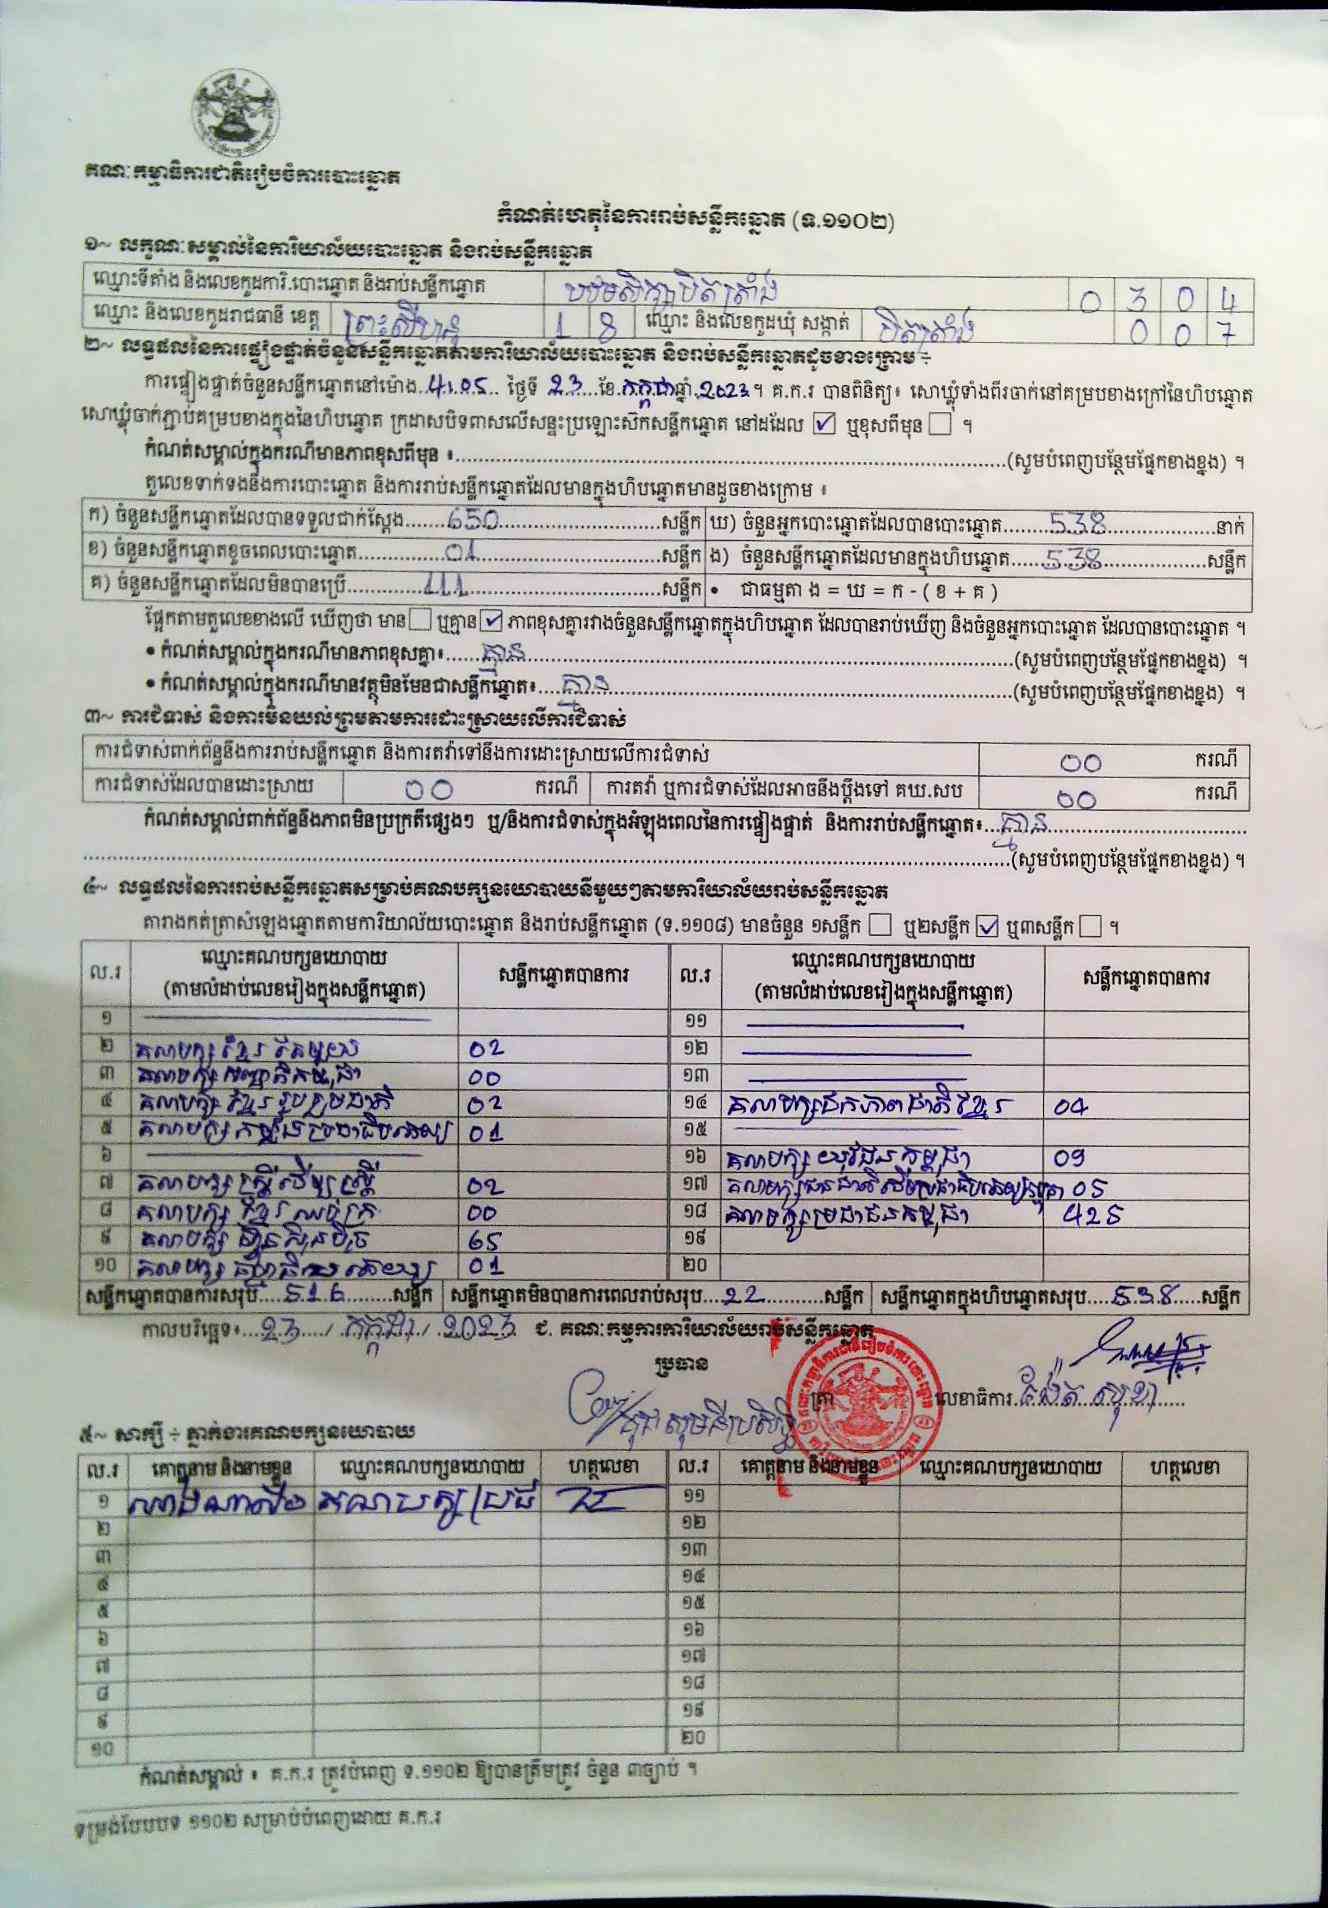 គណៈកម្មាធិការជាតិរៀបចំការបោះឆ្នោត
កំណត់ហេតុនៃការរាប់សន្លឹកឆ្នោត (ទ.១១០២)
១~ លក្ខណៈសម្គាល់នៃការិយាល័យបោះឆ្នោត និងរាប់សន្លឹកឆ្នោត
ឈ្មោះទីតាំង និងលេខកូដការិ.បោះឆ្នោត និងរាប់សន្លឹកឆ្នោត បឋមសិក្សាបិតត្រាំង 0 3 0 4
ឈ្មោះ និងលេខកូដរាជធានី ខេត្ត ព្រះសីហនុ 1 8 ឈ្មោះ និងលេខកូដឃុំ សង្កាត់ បិតត្រាំង 0 0 7
២~ លទ្ធផលនៃការផ្ទៀងផ្ទាត់ចំនួនសន្លឹកឆ្នោតតាមការិយាល័យបោះឆ្នោត និងរាប់សន្លឹកឆ្នោតដូចខាងក្រោម ÷
ការផ្ទៀងផ្ទាត់ចំនួនសន្លឹកឆ្នោតនៅម៉ោង..4:05... ថ្ងៃទី 23....ខែ.កក្កដា.ឆ្នាំ.2023។ គ.ក.រ បានពិនិត្យ៖ សោឃ្លុំទាំងពីរចាក់នៅគម្របខាងក្រៅនៃហិបឆ្នោត
សោឃ្លុំចាក់ភ្ជាប់គម្របខាងក្នុងនៃហិបឆ្នោត ក្រដាសបិទពាសលើសន្ទះប្រឡោះស៊កសន្លឹកឆ្នោត នៅដដែល ☑ ឬខុសពីមុន ☐ ។
កំណត់សម្គាល់ក្នុងករណីមានភាពខុសពីមុន ៖..........(សូមបំពេញបន្ថែមផ្នែកខាងខ្នង) ។
តួលេខទាក់ទងនឹងការបោះឆ្នោត និងការរាប់សន្លឹកឆ្នោតដែលមានក្នុងហិបឆ្នោតមានដូចខាងក្រោម ៖
ក) ចំនួនសន្លឹកឆ្នោតដែលបានទទួលជាក់ស្តែង.......650..........សន្លឹក ឃ) ចំនួនអ្នកបោះឆ្នោតដែលបានបោះឆ្នោត.......538..........នាក់
ខ) ចំនួនសន្លឹកឆ្នោតខូចពេលបោះឆ្នោត..........01..........សន្លឹក ង) ចំនួនសន្លឹកឆ្នោតដែលមានក្នុងហិបឆ្នោត......538..........សន្លឹក
គ) ចំនួនសន្លឹកឆ្នោតដែលមិនបានប្រើ..........111..........សន្លឹក • ជាធម្មតា ង = ឃ = ក - ( ខ + គ )
ផ្អែកតាមតួលេខខាងលើ ឃើញថា មាន ☐ ឬគ្មាន ☑ ភាពខុសគ្នារវាងចំនួនសន្លឹកឆ្នោតក្នុងហិបឆ្នោត ដែលបានរាប់ឃើញ និងចំនួនអ្នកបោះឆ្នោត ដែលបានបោះឆ្នោត ។
• កំណត់សម្គាល់ក្នុងករណីមានភាពខុសគ្នា៖.....គ្មាន..........(សូមបំពេញបន្ថែមផ្នែកខាងខ្នង) ។
• កំណត់សម្គាល់ក្នុងករណីមានវត្ថុមិនមែនជាសន្លឹកឆ្នោត៖...គ្មាន..........(សូមបំពេញបន្ថែមផ្នែកខាងខ្នង) ។
៣~ ការជំទាស់ និងការមិនយល់ព្រមតាមការដោះស្រាយលើការជំទាស់
ការជំទាស់ពាក់ព័ន្ធនឹងការរាប់សន្លឹកឆ្នោត និងការតវ៉ាទៅនឹងការដោះស្រាយលើការជំទាស់ 00 ករណី
ការជំទាស់ដែលបានដោះស្រាយ 00 ករណី ការតវ៉ា ឬការជំទាស់ដែលអាចនឹងប្តឹងទៅ គឃ.សប 00 ករណី
កំណត់សម្គាល់ពាក់ព័ន្ធនឹងភាពមិនប្រក្រតីផ្សេងៗ ឬ/និងការជំទាស់ក្នុងអំឡុងពេលនៃការផ្ទៀងផ្ទាត់ និងការរាប់សន្លឹកឆ្នោត៖...គ្មាន..........
..........(សូមបំពេញបន្ថែមផ្នែកខាងខ្នង) ។
៤~ លទ្ធផលនៃការរាប់សន្លឹកឆ្នោតសម្រាប់គណបក្សនយោបាយនីមួយៗតាមការិយាល័យរាប់សន្លឹកឆ្នោត
តារាងកត់ត្រាសំឡេងឆ្នោតតាមការិយាល័យបោះឆ្នោត និងរាប់សន្លឹកឆ្នោត (ទ.១១០៨) មានចំនួន ១សន្លឹក ☐ ឬ២សន្លឹក ☑ ឬ៣សន្លឹក ☐ ។
ល.រ ឈ្មោះគណបក្សនយោបាយ (តាមលំដាប់លេខរៀងក្នុងសន្លឹកឆ្នោត) សន្លឹកឆ្នោតបានការ ល.រ ឈ្មោះគណបក្សនយោបាយ (តាមលំដាប់លេខរៀងក្នុងសន្លឹកឆ្នោត) សន្លឹកឆ្នោតបានការ
១ ១១
២ គណបក្ស ខ្មែរ តែមួយ 02 ១២
៣ គណបក្ស កញ្ញាតិកម្ពុជា 00 ១៣
៤ គណបក្ស ខ្មែរ រួបរួមជាតិ 02 ១៤ គណបក្សឯកភាពជាតិខ្មែរ 04
៥ គណបក្ស កម្លាំងប្រជាធិបតេយ្យ 01 ១៥
៦ ១៦ គណបក្ស យុវជនកម្ពុជា 09
៧ គណបក្ស ស្ត្រីដើម្បីស្ត្រី 02 ១៧ គណបក្សជនជាតិដើមប្រជាធិបតេយ្យកម្ពុជា 05
៨ គណបក្ស ខ្មែរ ឈប់ក្រ 00 ១៨ គណបក្សប្រជាជនកម្ពុជា 425
៩ គណបក្ស ហ៊្វុនស៊ិនប៉ិច 65 ១៩
១០ គណបក្ស ធម្មាធិបតេយ្យ 01 ២០
សន្លឹកឆ្នោតបានការសរុប....516.......សន្លឹក សន្លឹកឆ្នោតមិនបានការពេលរាប់សរុប...22..........សន្លឹក សន្លឹកឆ្នោតក្នុងហិបឆ្នោតសរុប....538.....សន្លឹក
កាលបរិច្ឆេទ៖...23..../ កក្កដា / 2023 ជ. គណៈកម្មការការិយាល័យរាប់សន្លឹកឆ្នោត
ប្រធាន
ត្រា លេខាធិការ
៥~ សាក្សី ÷ ភ្នាក់ងារគណបក្សនយោបាយ
ល.រ គោត្តនាម និងនាមខ្លួន ឈ្មោះគណបក្សនយោបាយ ហត្ថលេខា ល.រ គោត្តនាម និងនាមខ្លួន ឈ្មោះគណបក្សនយោបាយ ហត្ថលេខា
១ គណបក្ស ប្រជ ១១
២ ១២
៣ ១៣
៤ ១៤
៥ ១៥
៦ ១៦
៧ ១៧
៨ ១៨
៩ ១៩
១០ ២០
កំណត់សម្គាល់ ៖ គ.ក.រ ត្រូវបំពេញ ទ.១១០២ ឱ្យបានត្រឹមត្រូវ ចំនួន ៣ច្បាប់ ។
ទម្រង់បែបបទ ១១០២ សម្រាប់បំពេញដោយ គ.ក.រ